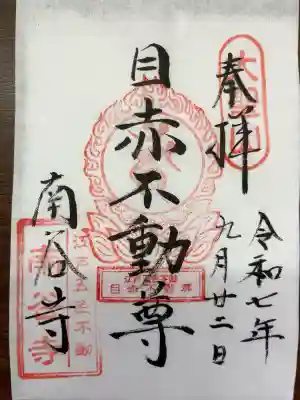 奉拝
令和七年
九月廿二日
目赤不動尊
南谷寺
大聖山
江戸五色不動
南谷寺